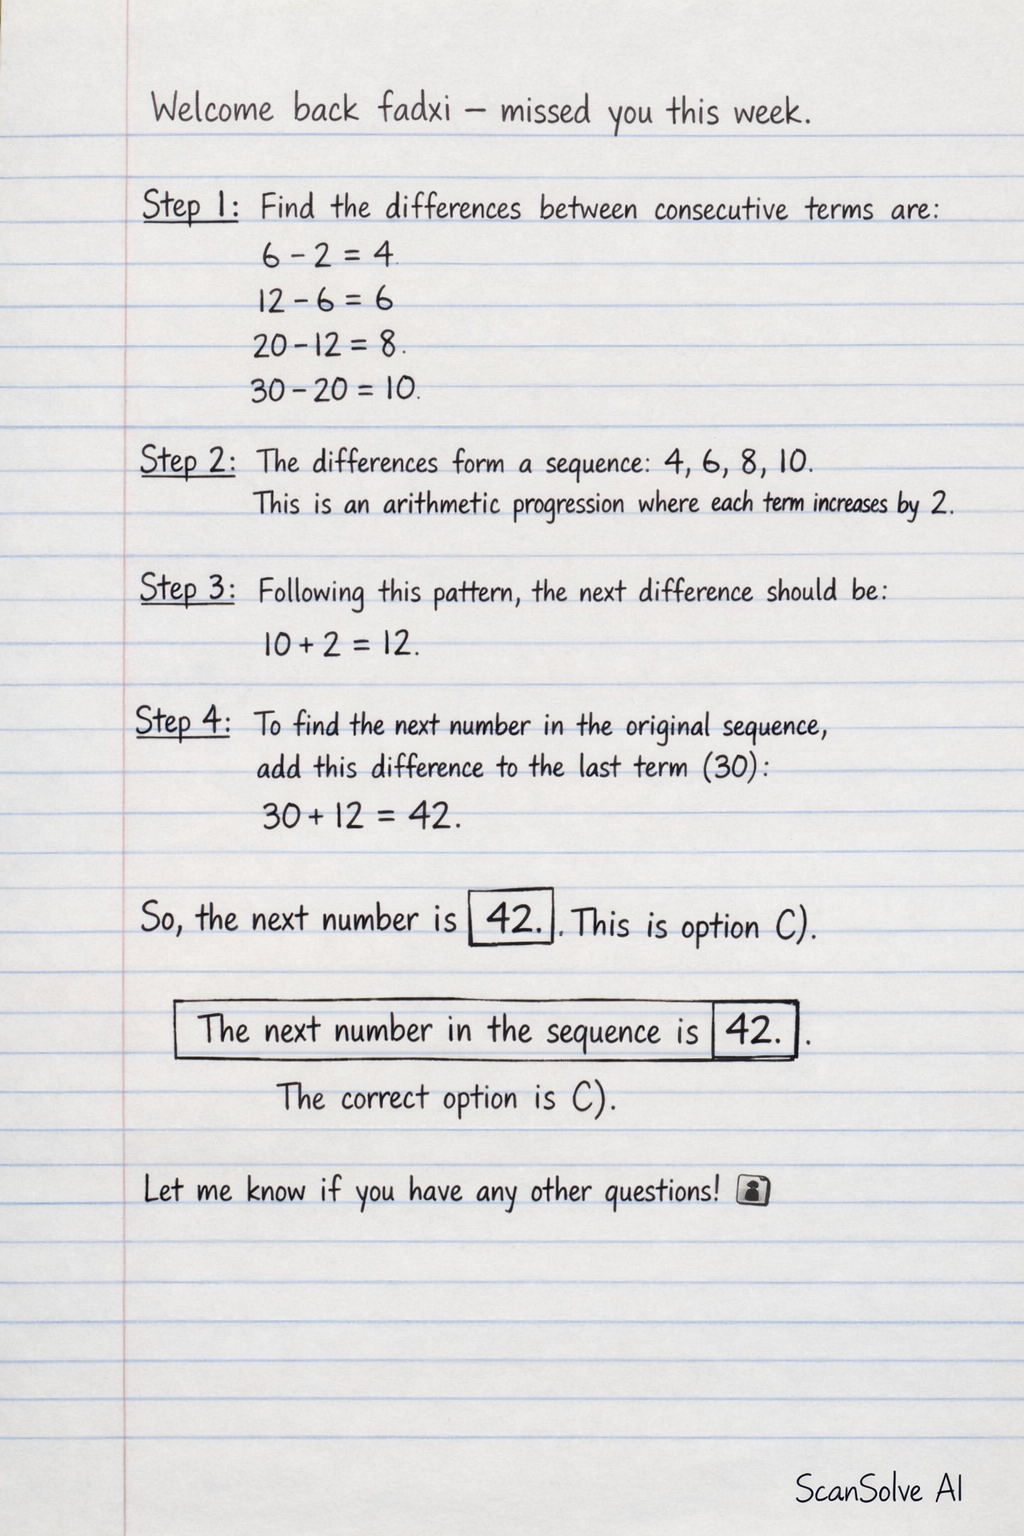 Welcome back fadxi – missed you this week.
Step 1: Find the differences between consecutive terms are:
6 – 2 = 4.
12 – 6 = 6
20 – 12 = 8.
30 – 20 = 10.
Step 2: The differences form a sequence: 4, 6, 8, 10.
This is an arithmetic progression where each term increases by 2.
Step 3: Following this pattern, the next difference should be:
10 + 2 = 12.
Step 4: To find the next number in the original sequence,
add this difference to the last term (30):
30 + 12 = 42.
So, the next number is 42.. This is option C).
The next number in the sequence is 42. .
The correct option is C).
Let me know if you have any other questions!
ScanSolve AI